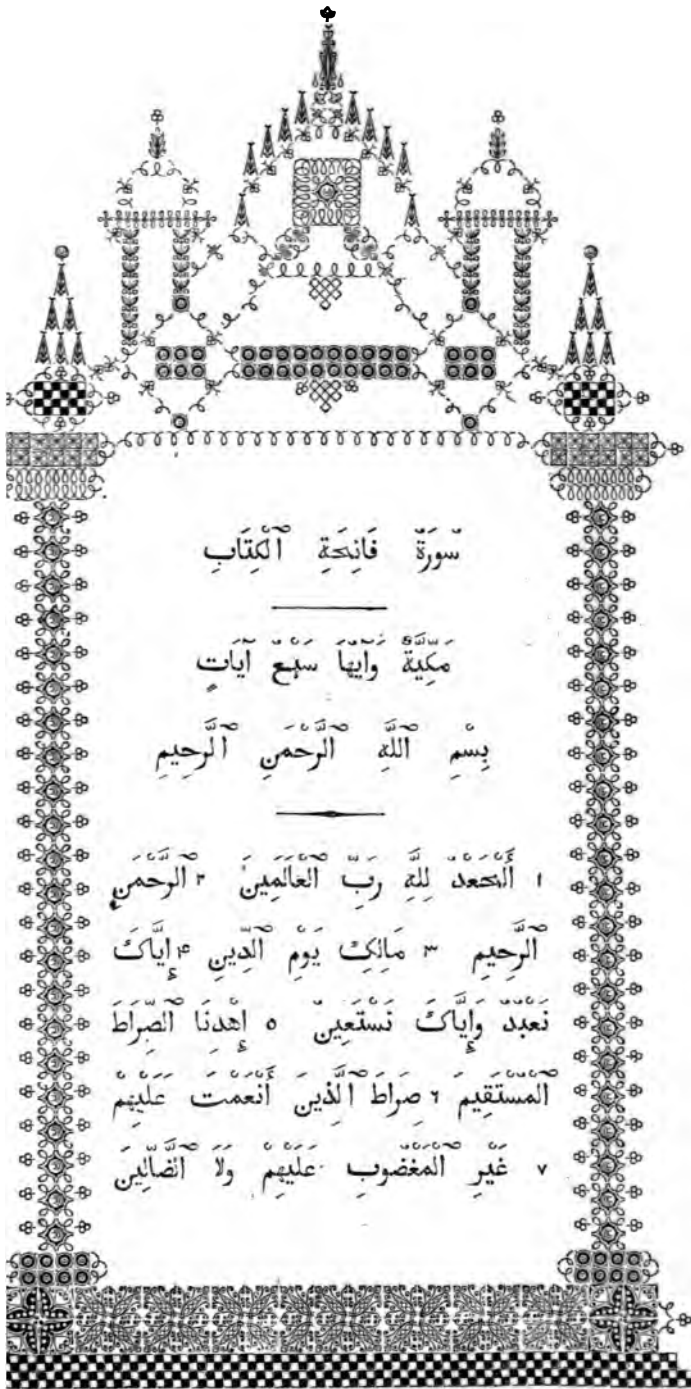 سُورَةُ فَاتِحَةِ ٱلْكِتَابِ
مَكِّيَّةٌ وَآيُهَا سَبْعُ آيَاتٍ
بِسْمِ ٱللَّهِ ٱلرَّحْمَنِ ٱلرَّحِيمِ
١ أَلْحَمْدُ لِلَّهِ رَبِّ ٱلْعَالَمِينَ ٢ ٱلرَّحْمَنِ
ٱلرَّحِيمِ ٣ مَالِكِ يَوْمِ ٱلدِّينِ ۴ إِيَّاكَ
نَعْبُدُ وَإِيَّاكَ نَسْتَعِينُ ٥ إِهْدِنَا ٱلصِّرَاطَ
ٱلْمُسْتَقِيمَ ٦ صِرَاطَ ٱلَّذِينَ أَنْعَمْتَ عَلَيْهِمْ
٧ غَيْرِ ٱلْمَغْضُوبِ عَلَيْهِمْ وَلَا ٱلضَّالِّينَ